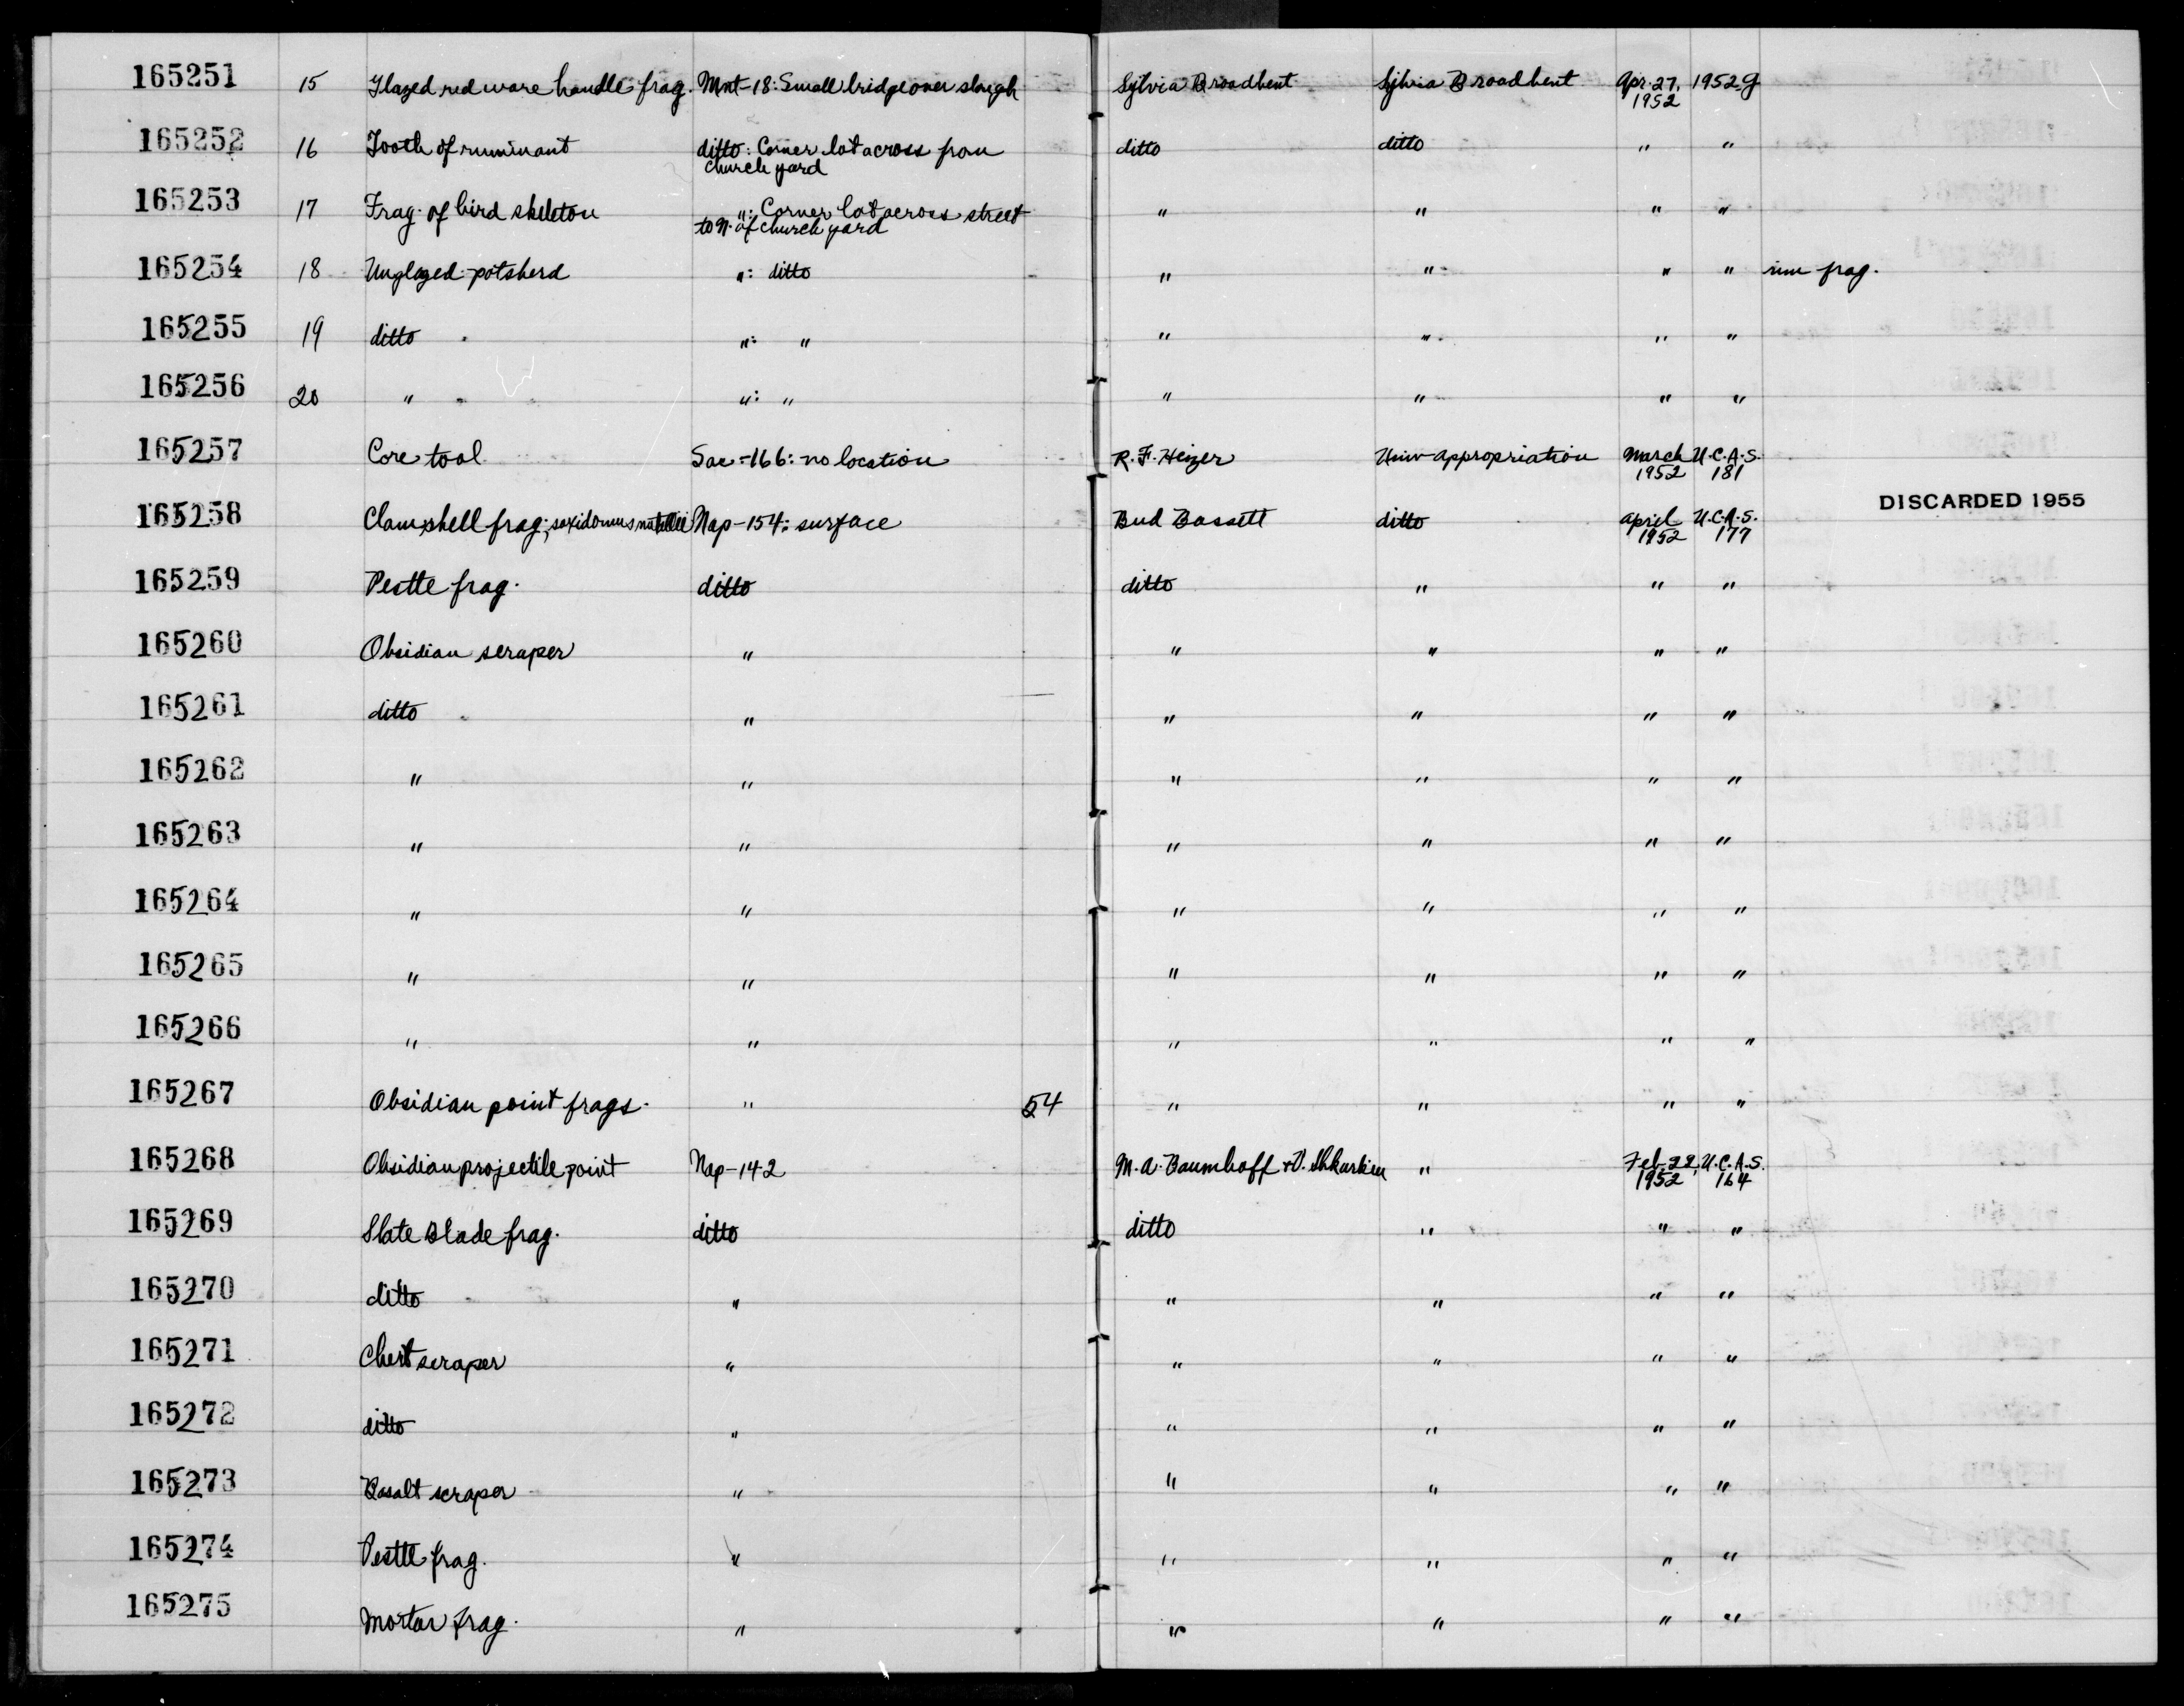 165251 15 Glazed red ware handle frag. Mnt-18: Small bridge over slough Sylvia Broadbent Sylvia Broadbent Apr. 27, 1952 g
1952
165252 16 Tooth of ruminant ditto: Corner lot across from ditto ditto " "
church yard
165253 17 Frag. of bird skeleton ": Corner lot across street " " " "
to N. of church yard
165254 18 Unglazed potsherd ": ditto " " " " rim frag.
165255 19 ditto ": " " " " "
165256 20 " ": " " " " "
165257 Core tool Sac-166: no location R. F. Heizer Univ appropriation March U.C.A.S.
1952 181
165258 Clamshell frag; saxidomus nuttallii Nap-154: surface Bud Bassett ditto April U.C.A.S. DISCARDED 1955
1952 177
165259 Pestle frag. ditto ditto " " "
165260 Obsidian scraper " " " " "
165261 ditto " " " " "
165262 " " " " " "
165263 " " " " " "
165264 " " " " " "
165265 " " " " " "
165266 " " " " " "
165267 Obsidian point frags. " 54 " " " "
165268 Obsidian projectile point Nap-142 M. A. Baumhoff + D. " Feb. 22, U.C.A.S.
1952 164
165269 Slate Blade frag. ditto ditto " " "
165270 ditto " " " " "
165271 Chert scraper " " " " "
165272 ditto " " " " "
165273 Basalt scraper " " " " "
165274 Pestle frag. " " " " "
165275 Mortar frag. " " " " "